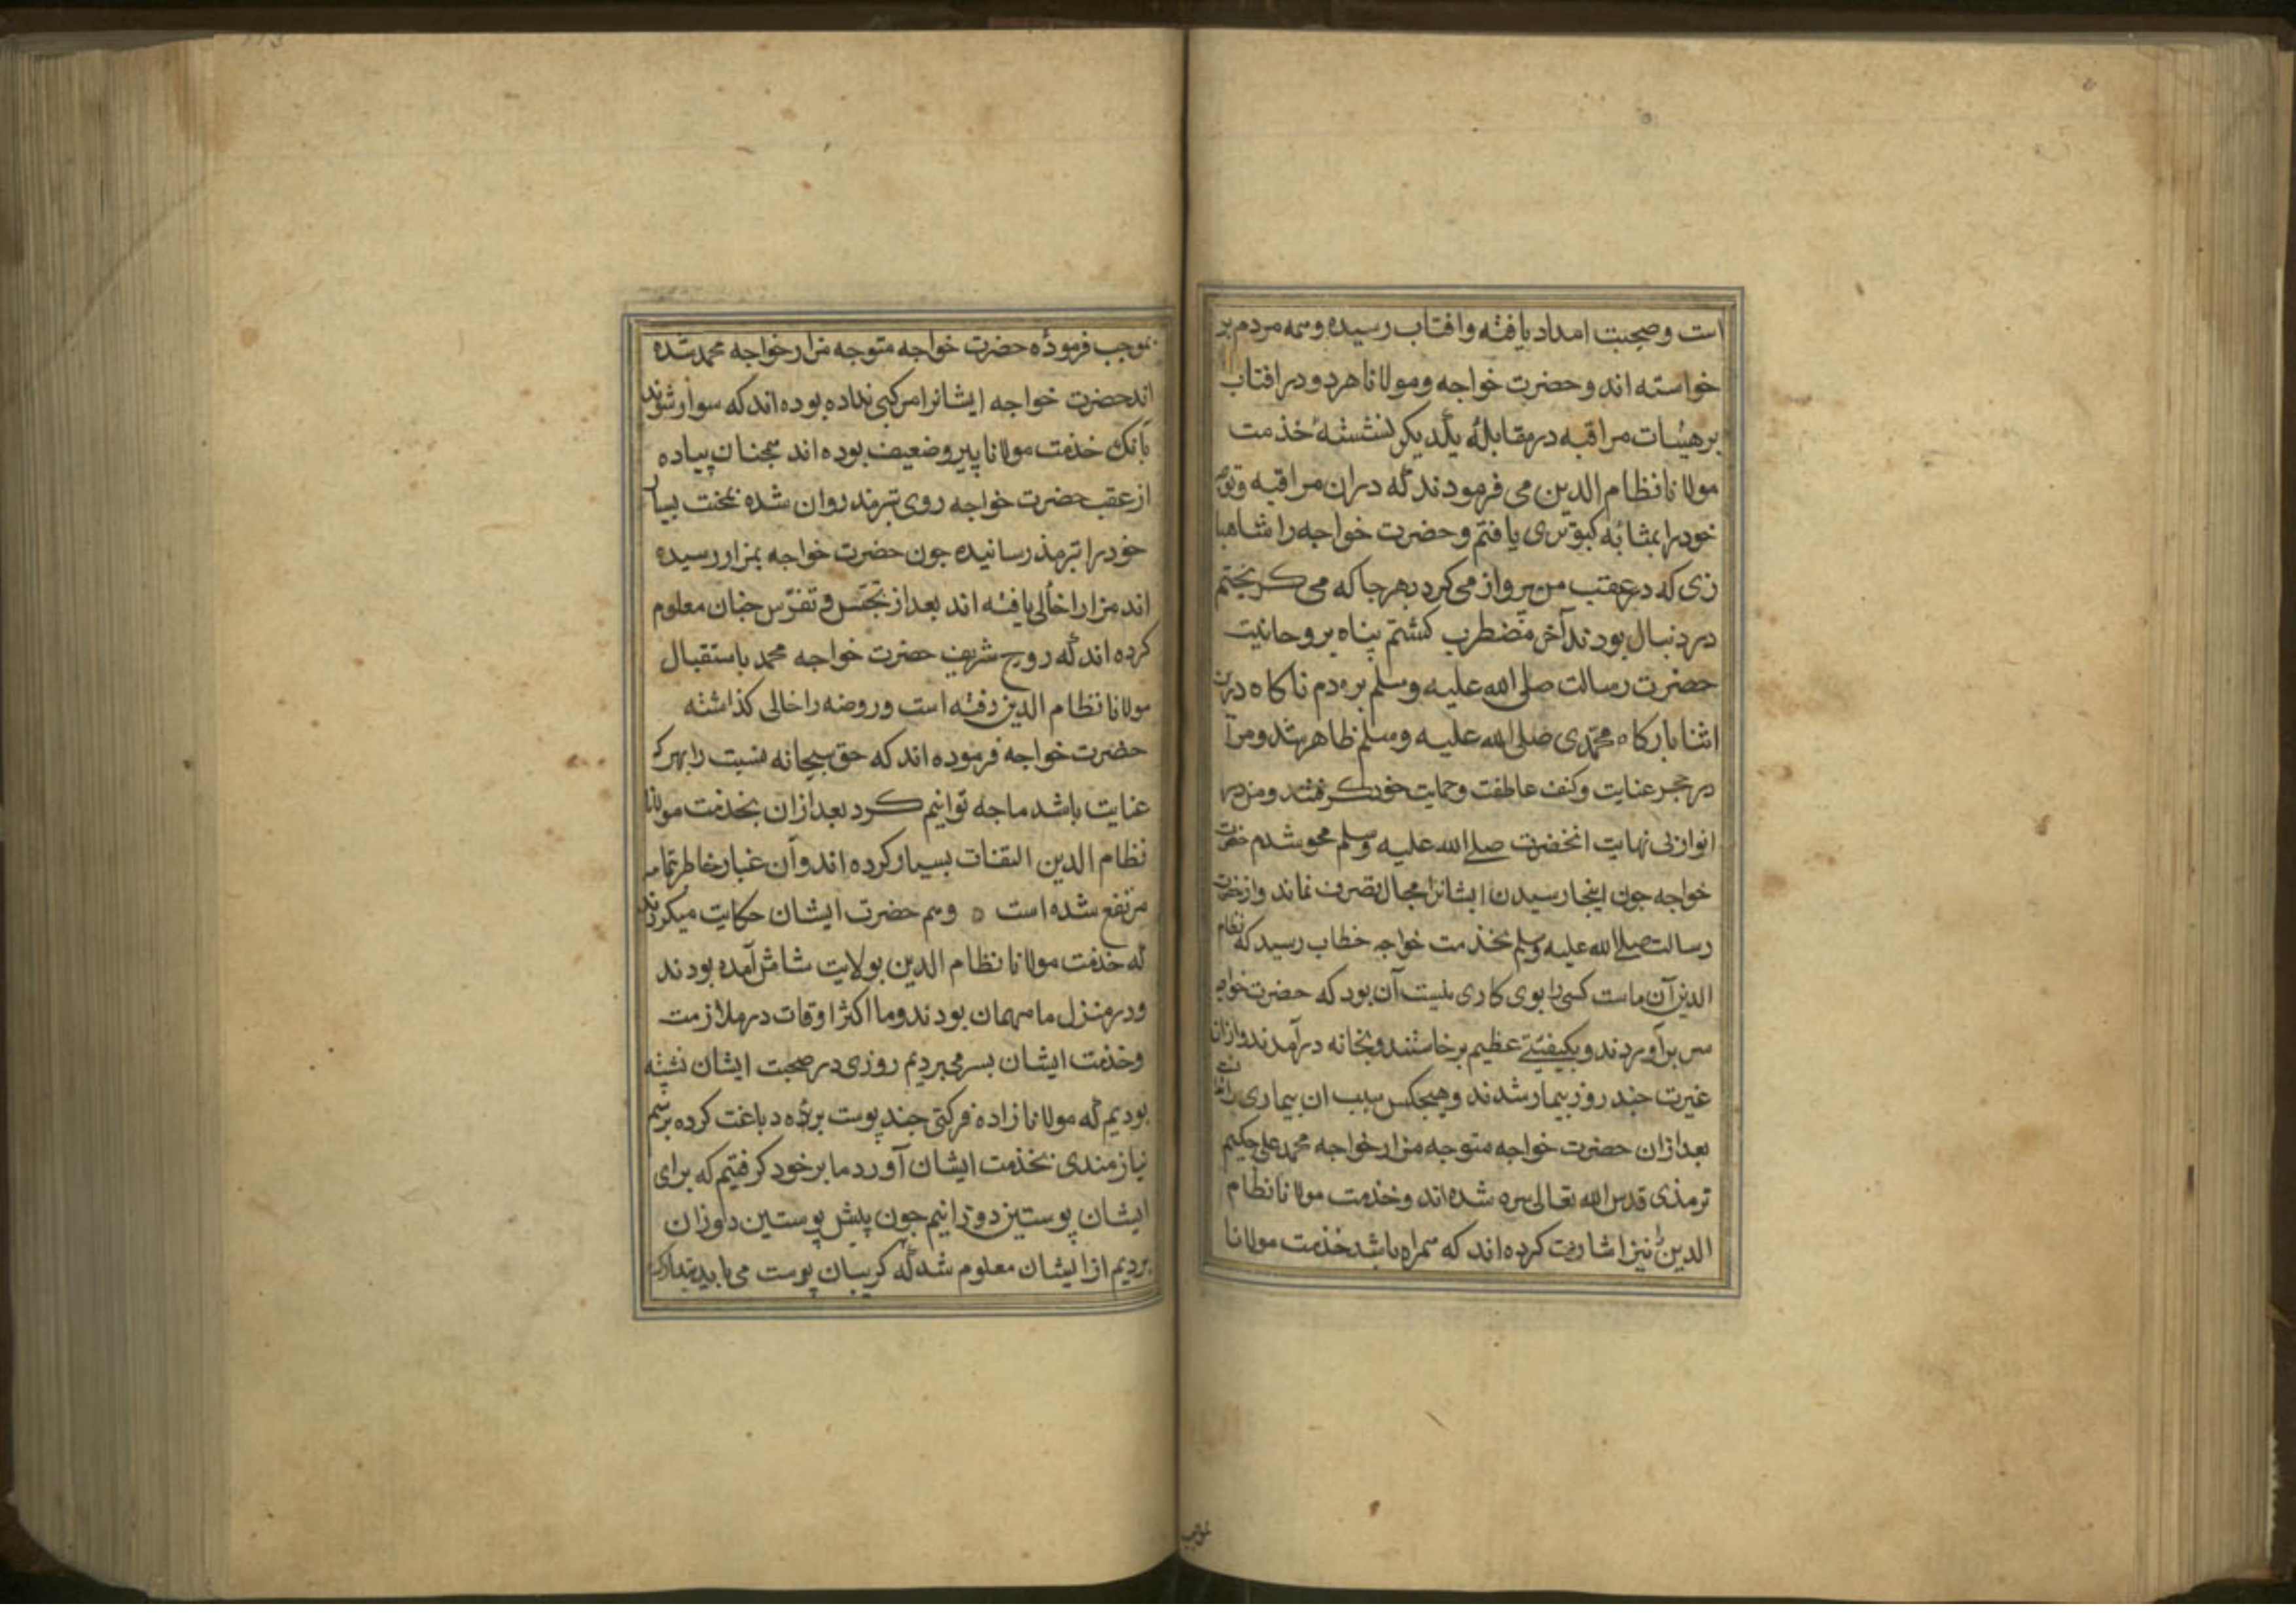 است وصحبت امداد یافته وافتاب رسیده وهمه مردم بر
خواسته اند وحضرت خواجه ومولانا هردو در افتاب
بر هیئات مراقبه در مقابلهٔ یکدیکر نشسته خذمت
مولانا نظام الدین می فرمودند که دران مراقبه
خود را بمثابه کبوتری یافتم وحضرت خواجه را مثابه با
زی که در عقب من پرواز می کرد بهرجا که می کریختم
در دنبال بودند آخر مضطرب کشتم پناه بروحانیت
حضرت رسالت صلی الله علیه وسلم بردم ناکاه درین
اثنا بارکاه محمدی صلی الله علیه وسلم ظاهر شد ومرا
در حجر عنایت وکنف عاطفت وحمایت خود کرفتند ومن در
انوار بی نهایت انحضرت صلی الله علیه وسلم محو شدم حضرت
خواجه جون اینجا رسیدن ایشانرا مجال تصرف نماند واز حضرت
رسالت صلی الله علیه وسلم بخذمت خواجه خطاب رسید که نظام
الدین آن ماست کسی را بوی کاری نیست آن بود که حضرت خواجه
سر برآوردند وبکیفیتی عظیم برخاستند وبخانه درآمدند وازان
غیرت جند روز بیمار شدند وهیجکس سبب ان بیماری را ندانست
بعد ازان حضرت خواجه متوجه مزار خواجه محمد علی حکیم
ترمذی قدس الله تعالی سره شده اند وخذمت مولانا نظام
الدین نیز اشارت کرده اند که همراه باشد خذمت مولانا
بموجب
بموجب فرمودٔه حضرت خواجه متوجه مزار خواجه محمد شده
اند حضرت خواجه ایشانرا مرکبی نداده بوده اند که سوار شوند
بآنک خذمت مولانا پیر وضعیف بوده اند همجنان پیاده
از عقب حضرت خواجه روی بترمذ روان شده بمحنت بسیار
خود را بترمذ رسانیده جون حضرت خواجه بمزار رسیده
اند مزار را خالی یافته اند بعد از تجسس وتفرس جنان معلوم
کرده اند که روح شریف حضرت خواجه محمد باستقبال
مولانا نظام الدین رفته است وروضه را خالی کذاشته
حضرت خواجه فرموده اند که حق سبحانه نسبت را بهر که
عنایت باشد ما جه توانیم کرد بعد ازان بخذمت مولانا
نظام الدین التفات بسیار کرده اند وآن غبار خاطر تمام
مرتفع شده است ه وهم حضرت ایشان حکایت میکردند
که خذمت مولانا نظام الدین بولایت شاش آمده بودند
ودر منزل ما مهمان بودند وما اکثر اوقات در ملازمت
وخذمت ایشان بسر می بردیم روزی در صحبت ایشان نشسته
بودیم که مولانا زاده فرکتی جند پوست برٔه دباغت کرده برسم
نیازمندی بخذمت ایشان آورد ما بر خود کرفتیم که برای
ایشان پوستین دوزانیم جون پیش پوستین دوزان
بردیم از ایشان معلوم شد که کریبان پوست می باید